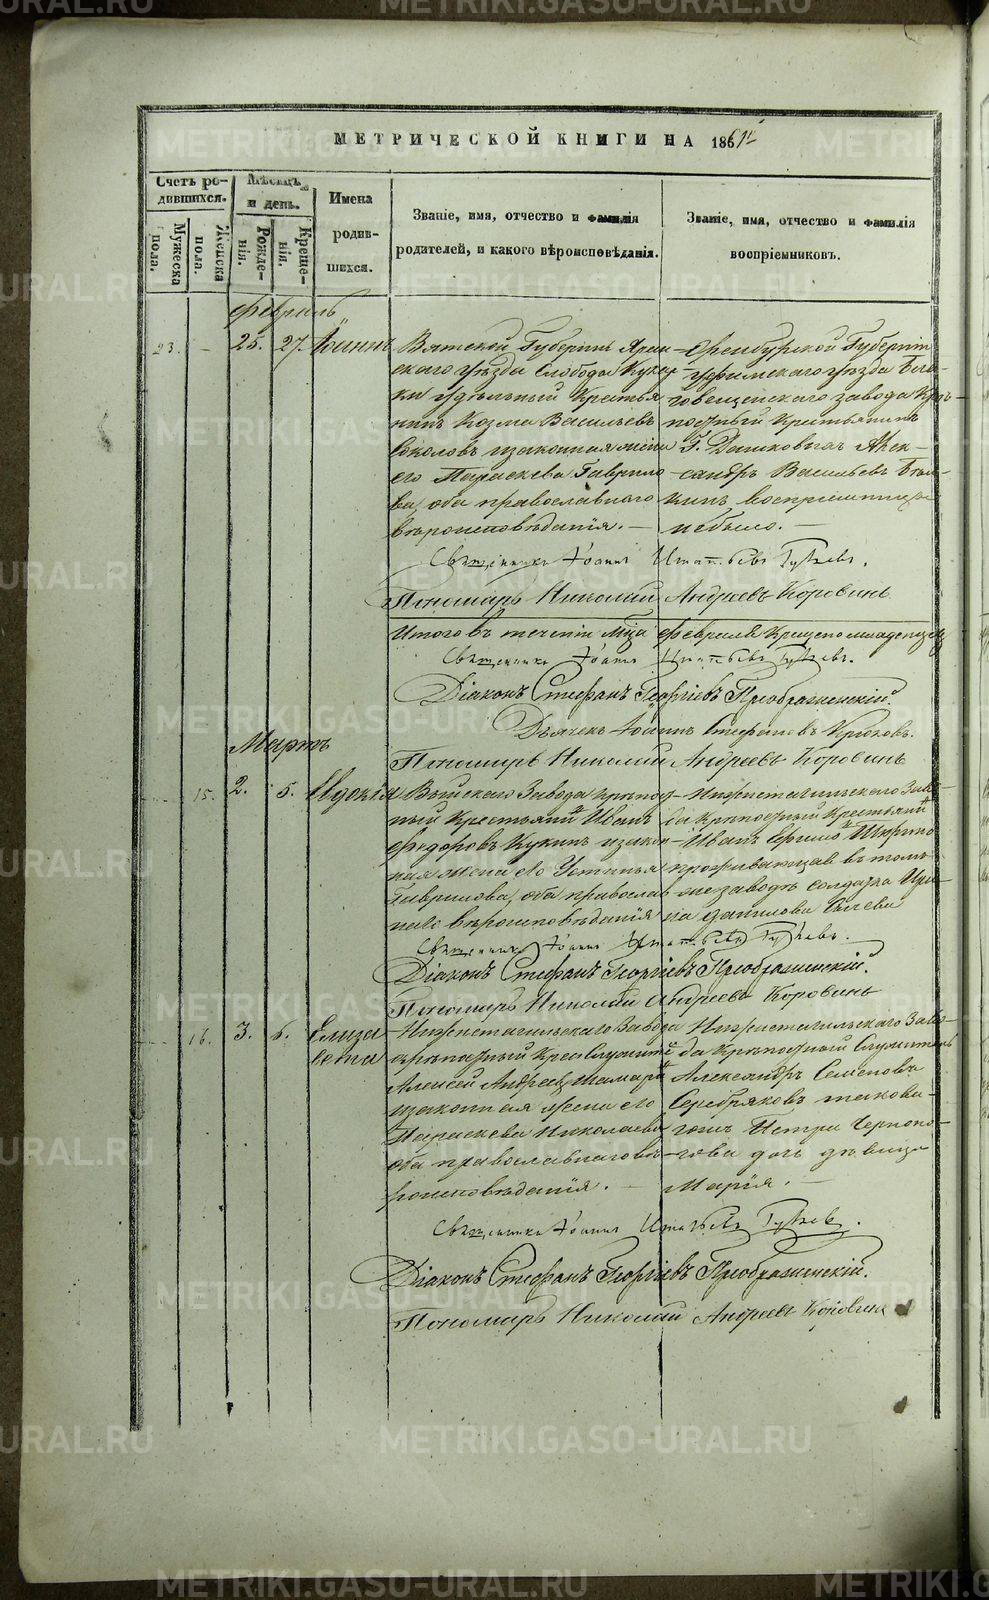 МЕТРИЧЕСКОЙ КНИГИ НА 1861й
Счетъ ро-
дившихся.
Мужеска
пола.
Женска
пола.
Мѣсяцъ
и день.
Рожде-
нія.
Креще-
нія.
Имена
родив-
шихся.
Званіе, имя, отчество и фамилія
родителей, и какого вѣроисповѣданія.
Званіе, имя, отчество и фамилія
воспріемниковъ.
Февраль
23. - 25. 27. Іоаннъ
Вятской Губерніи Яран-
скаго уѣзда Слободы Кукар-
ки удѣльный Крестья
нинъ Козма Васильевъ
Соколовъ и законная жена
его Параскева Гаврило
ва, оба православнаго
вѣроисповѣданія. —
Оренбургской Губерніи
Уфимскаго уѣзда Бла-
говещенскаго завода Крѣ-
постный Крестьянинъ
Г. Дашкова Алек-
сандръ Васильевъ
воспріемницы
небыло. —
Священникъ Іоаннъ Игнатьевъ
Пономарь Николай Андреевъ Коровинъ
Итого въ теченіи М-ца Февраля Крещено младенцевъ
Священникъ Іоаннъ Игнатьевъ
Діаконъ Стефанъ Георгіевъ Преображенскій.
Дьячекъ Іоаннъ Стефановъ Крюковъ.
Пономарь Николай Андреевъ Коровинъ
Мартъ
15. 2. 5. Евдокія
Выйскаго Завода крѣпос-
ный Крестьянинъ Иванъ
Федоровъ Кукинъ и закон-
ная жена его Устинья
Гаврилова, оба православ-
наго вѣроисповѣданія
Нижнетагильскаго Заво-
да Крѣпостный Крестьянинъ
Иванъ
проживающая въ томъ
же заводѣ солдатка Ири-
на Данилова
Священникъ Іоаннъ Игнатьевъ
Діаконъ Стефанъ Георгіевъ Преображенскій.
Пономарь Николай Андреевъ Коровинъ
16. 3. 6. Елиза
вета
Нижнетагильскаго Завода
крѣпостный Служитель
Алексей Андреевъ
и законная жена его
Параскева Николаева
оба православнаго вѣ-
роисповѣданія. —
Нижнетагильскаго Заво-
да Крѣпостный Служитель
Александръ Семеновъ
Серебряковъ такова-
гожъ Петра Черпоно-
гова дочь дѣвица
Марія. —
Священникъ Іоаннъ Игнатьевъ
Діаконъ Стефанъ Георгіевъ Преображенскій.
Пономарь Николай Андреевъ Коровинъ
METRIKI.GASO-URAL.RU